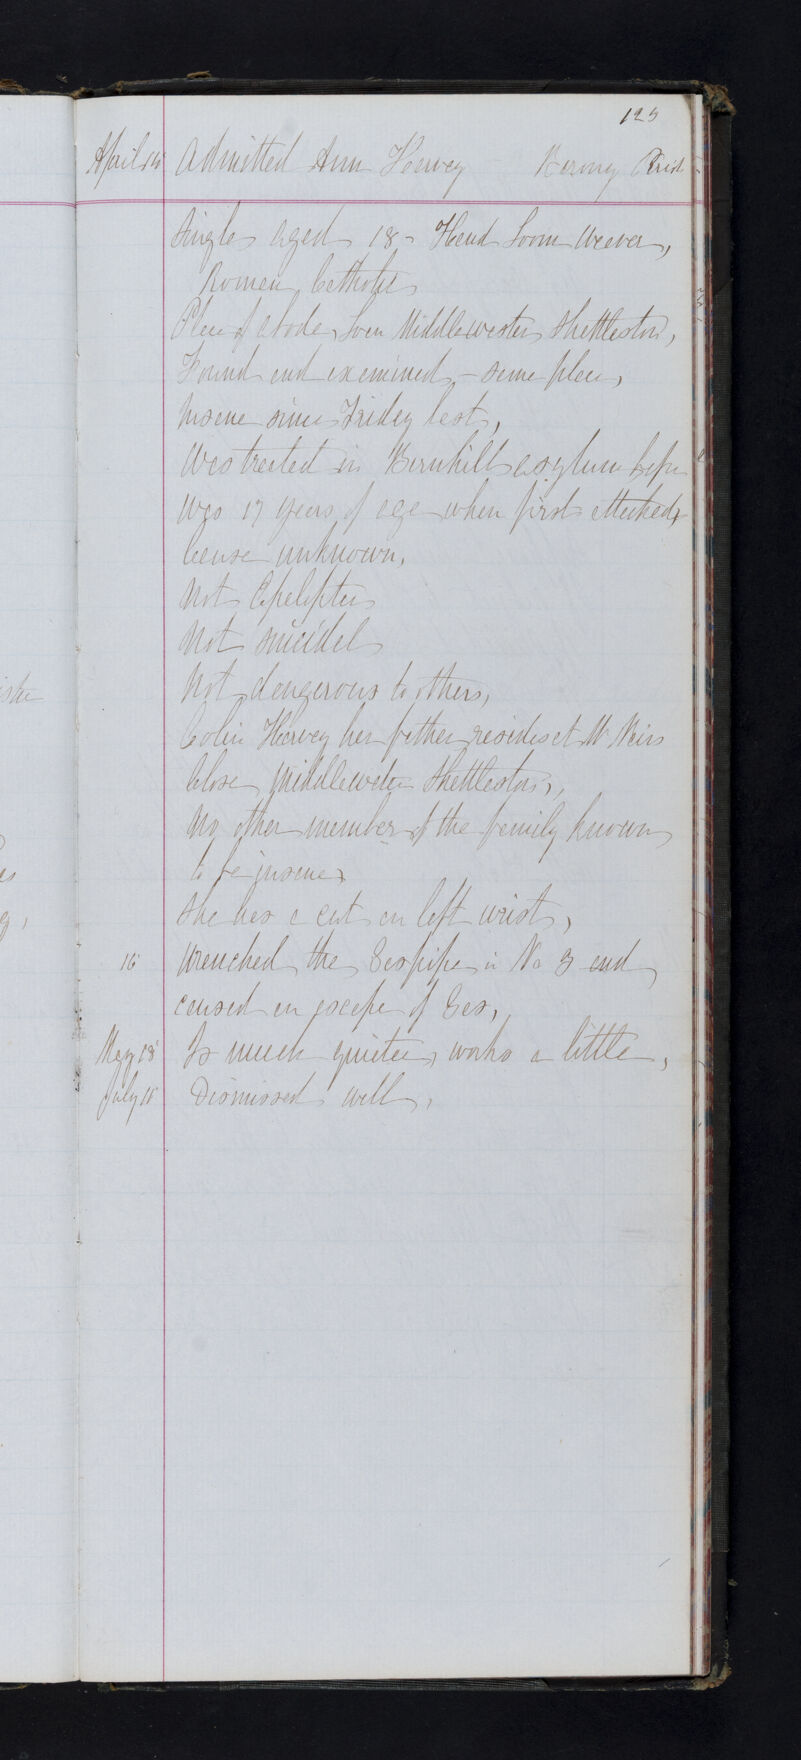 125
April 14 Admitted Ann Harvey Barony Parish
Single aged 18 - Hand Loom Weaver,
Roman Catholic
Place of abode, Middlewester Shettleston,
Found and examined - same place,
Insane since Friday last,
Was treated in Barnhill asylum before
Was 17 years of age when first attacked,
Cause unknown,
Not Epeleptic
Not suicidal
Not dangerous to others,
Colin Harvey her father resides at Mc Nairs
Close Shettleston,
No other member of the family known
to be insane
She has a cut on left wrist,
16 Wrenched the Gaspipe in No 3 and
caused an escape of Gas,
May 18 Is much quieter, works a little,
July 11 Dismissed well,